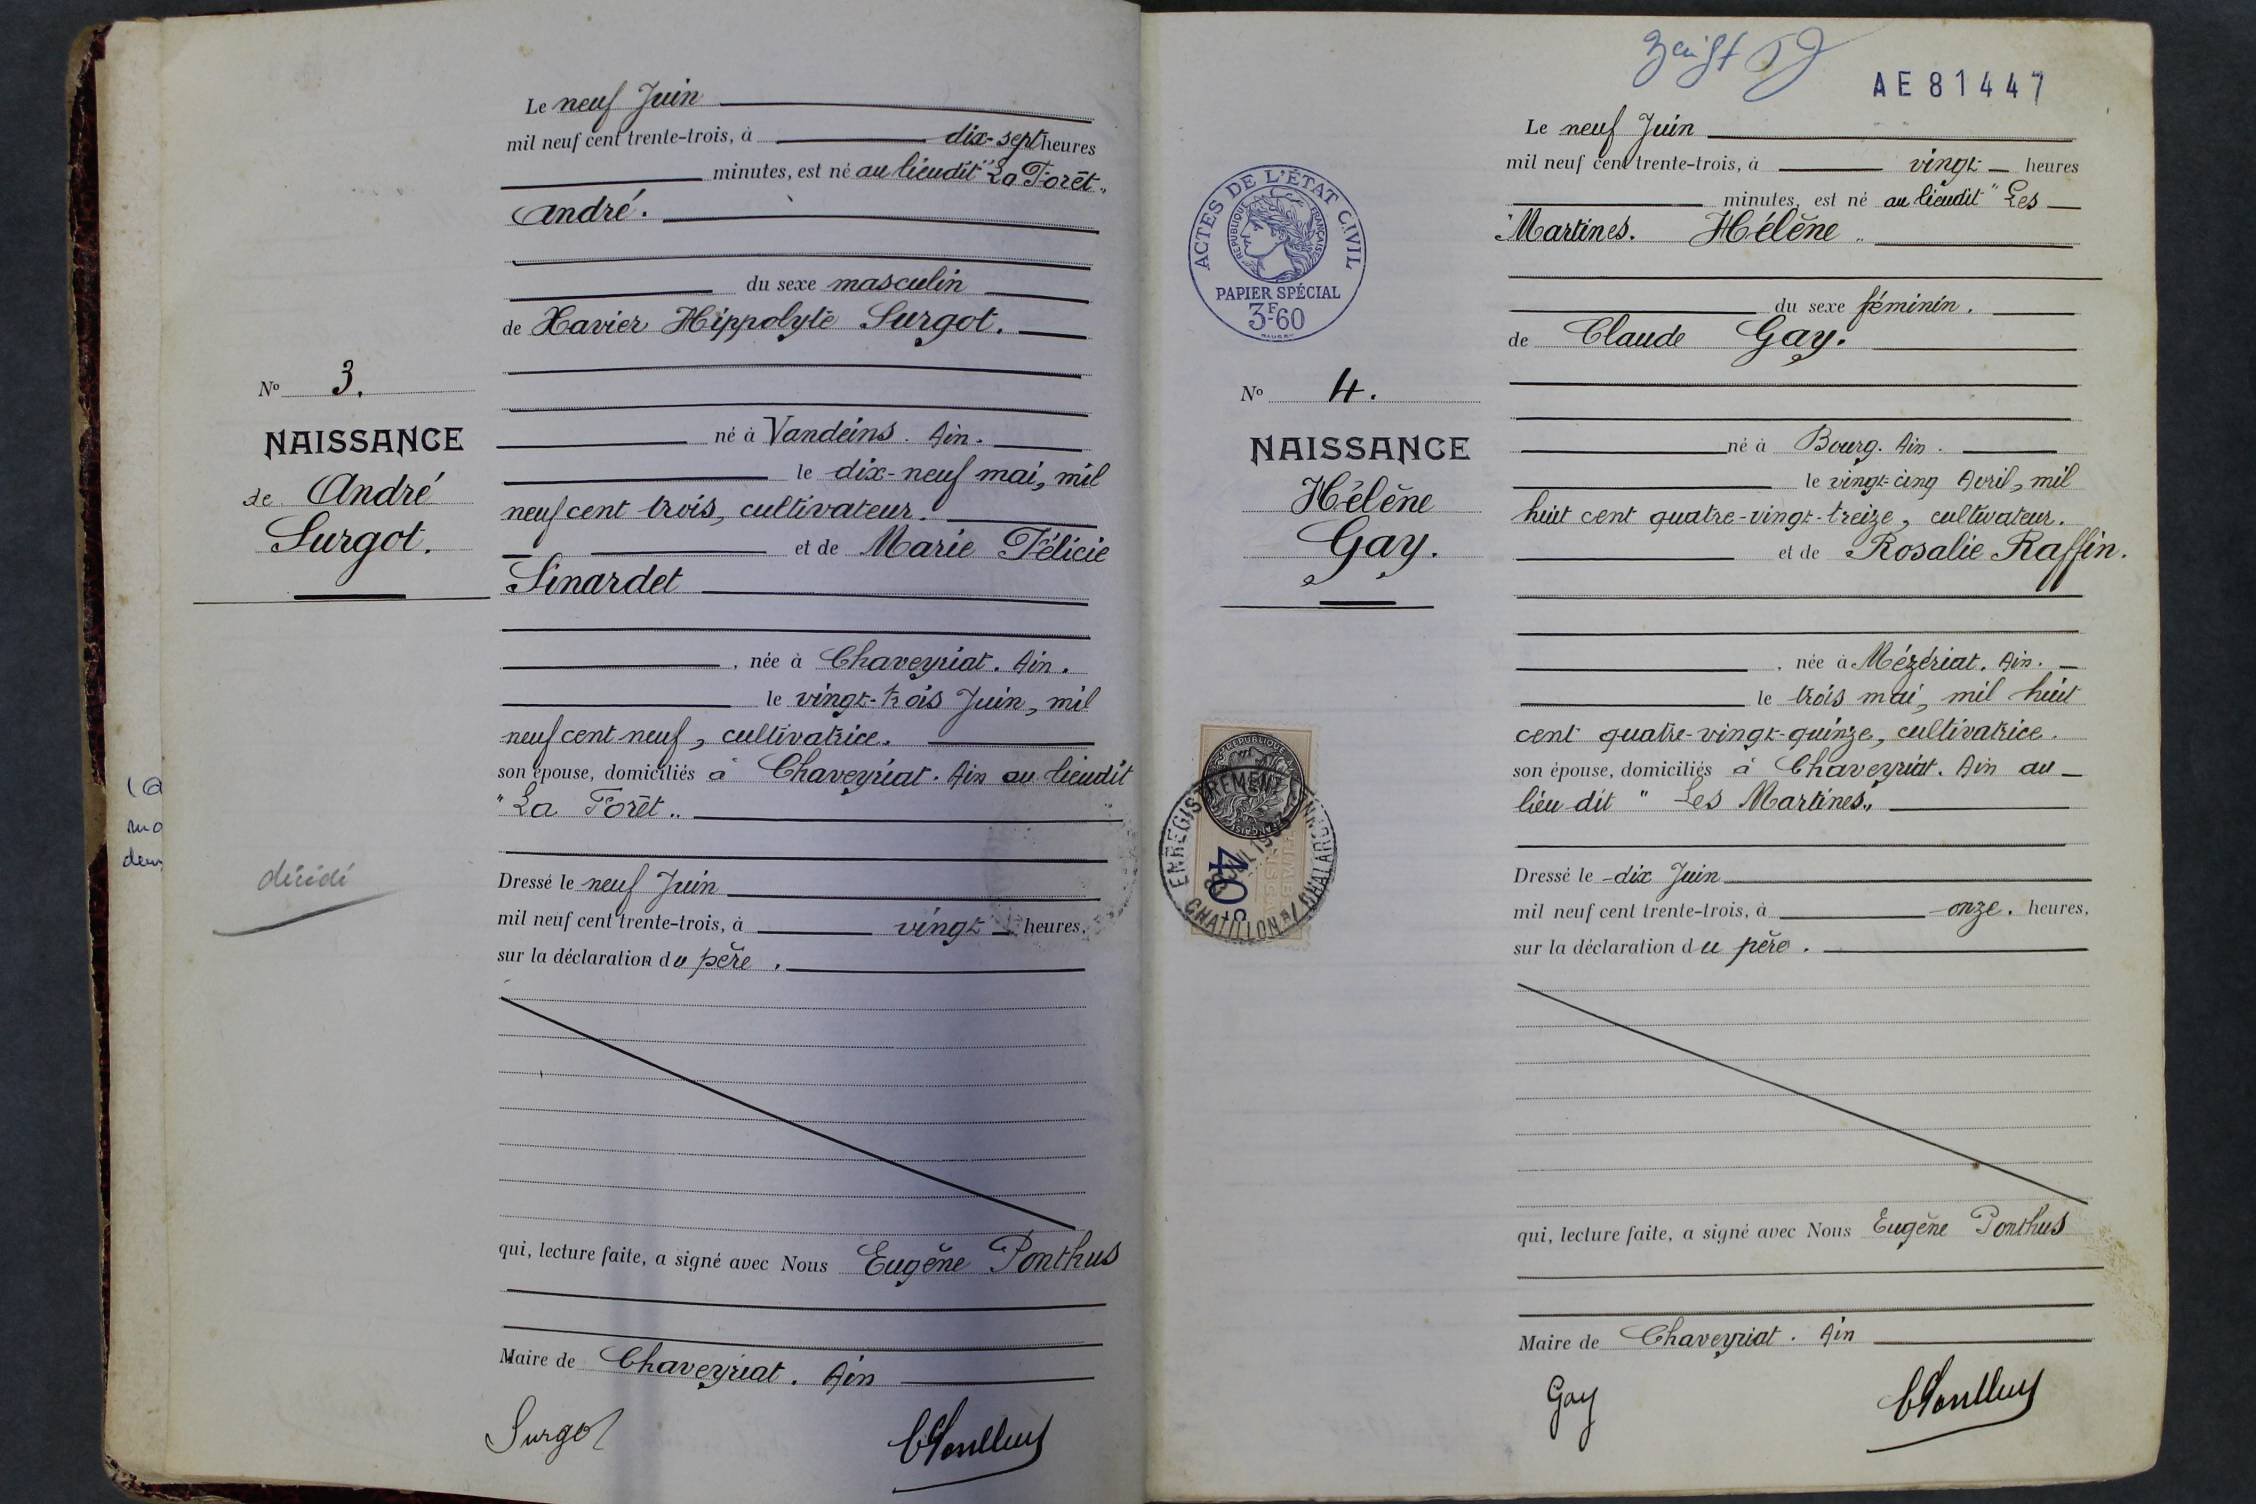 Le neuf Juin
mil neuf cent trente-trois, à dix-sept heures
minutes, est né au lieudit "La Forêt"
André.
du sexe masculin
de Xavier Hippolyte Surgot.
No 3.
NAISSANCE
de André
Surgot.
né à Vandeins. Ain.
le dix-neuf mai, mil
neuf cent trois, cultivateur.
et de Marie Félicie
Sinardet
, née à Chaveyriat. Ain.
le vingt-trois Juin, mil
neuf cent neuf, cultivatrice.
son épouse, domiciliés à Chaveyriat. Ain au lieudit
"La Forêt"
Dressé le neuf Juin
mil neuf cent trente-trois, à vingt heures,
sur la déclaration du père.
qui, lecture faite, a signé avec Nous Eugène Ponthus
Maire de Chaveyriat. Ain
Surgot
décédé
AE81447
ACTES DE L'ÉTAT CIVIL
RÉPUBLIQUE FRANÇAISE
PAPIER SPÉCIAL
3F60
Le neuf Juin
mil neuf cent trente-trois, à vingt heures
minutes, est né au lieudit "Les
Martines. Hélène
du sexe féminin.
de Claude Gay.
No 4.
NAISSANCE
Hélène
Gay.
né à Bourg. Ain.
le vingt-cinq Avril, mil
huit cent quatre-vingt-treize, cultivateur.
et de Rosalie Raffin.
, née à Mézériat. Ain.
le trois mai, mil huit
cent quatre-vingt-quinze, cultivatrice.
son épouse, domiciliés à Chaveyriat. Ain au
lieu dit "Les Martines"
ENREGISTREMENT
CHATILLON s/ CHALARONNE
40c
Dressé le dix Juin
mil neuf cent trente-trois, à onze. heures,
sur la déclaration du père.
qui, lecture faite, a signé avec Nous Eugène Ponthus
Maire de Chaveyriat. Ain
Gay